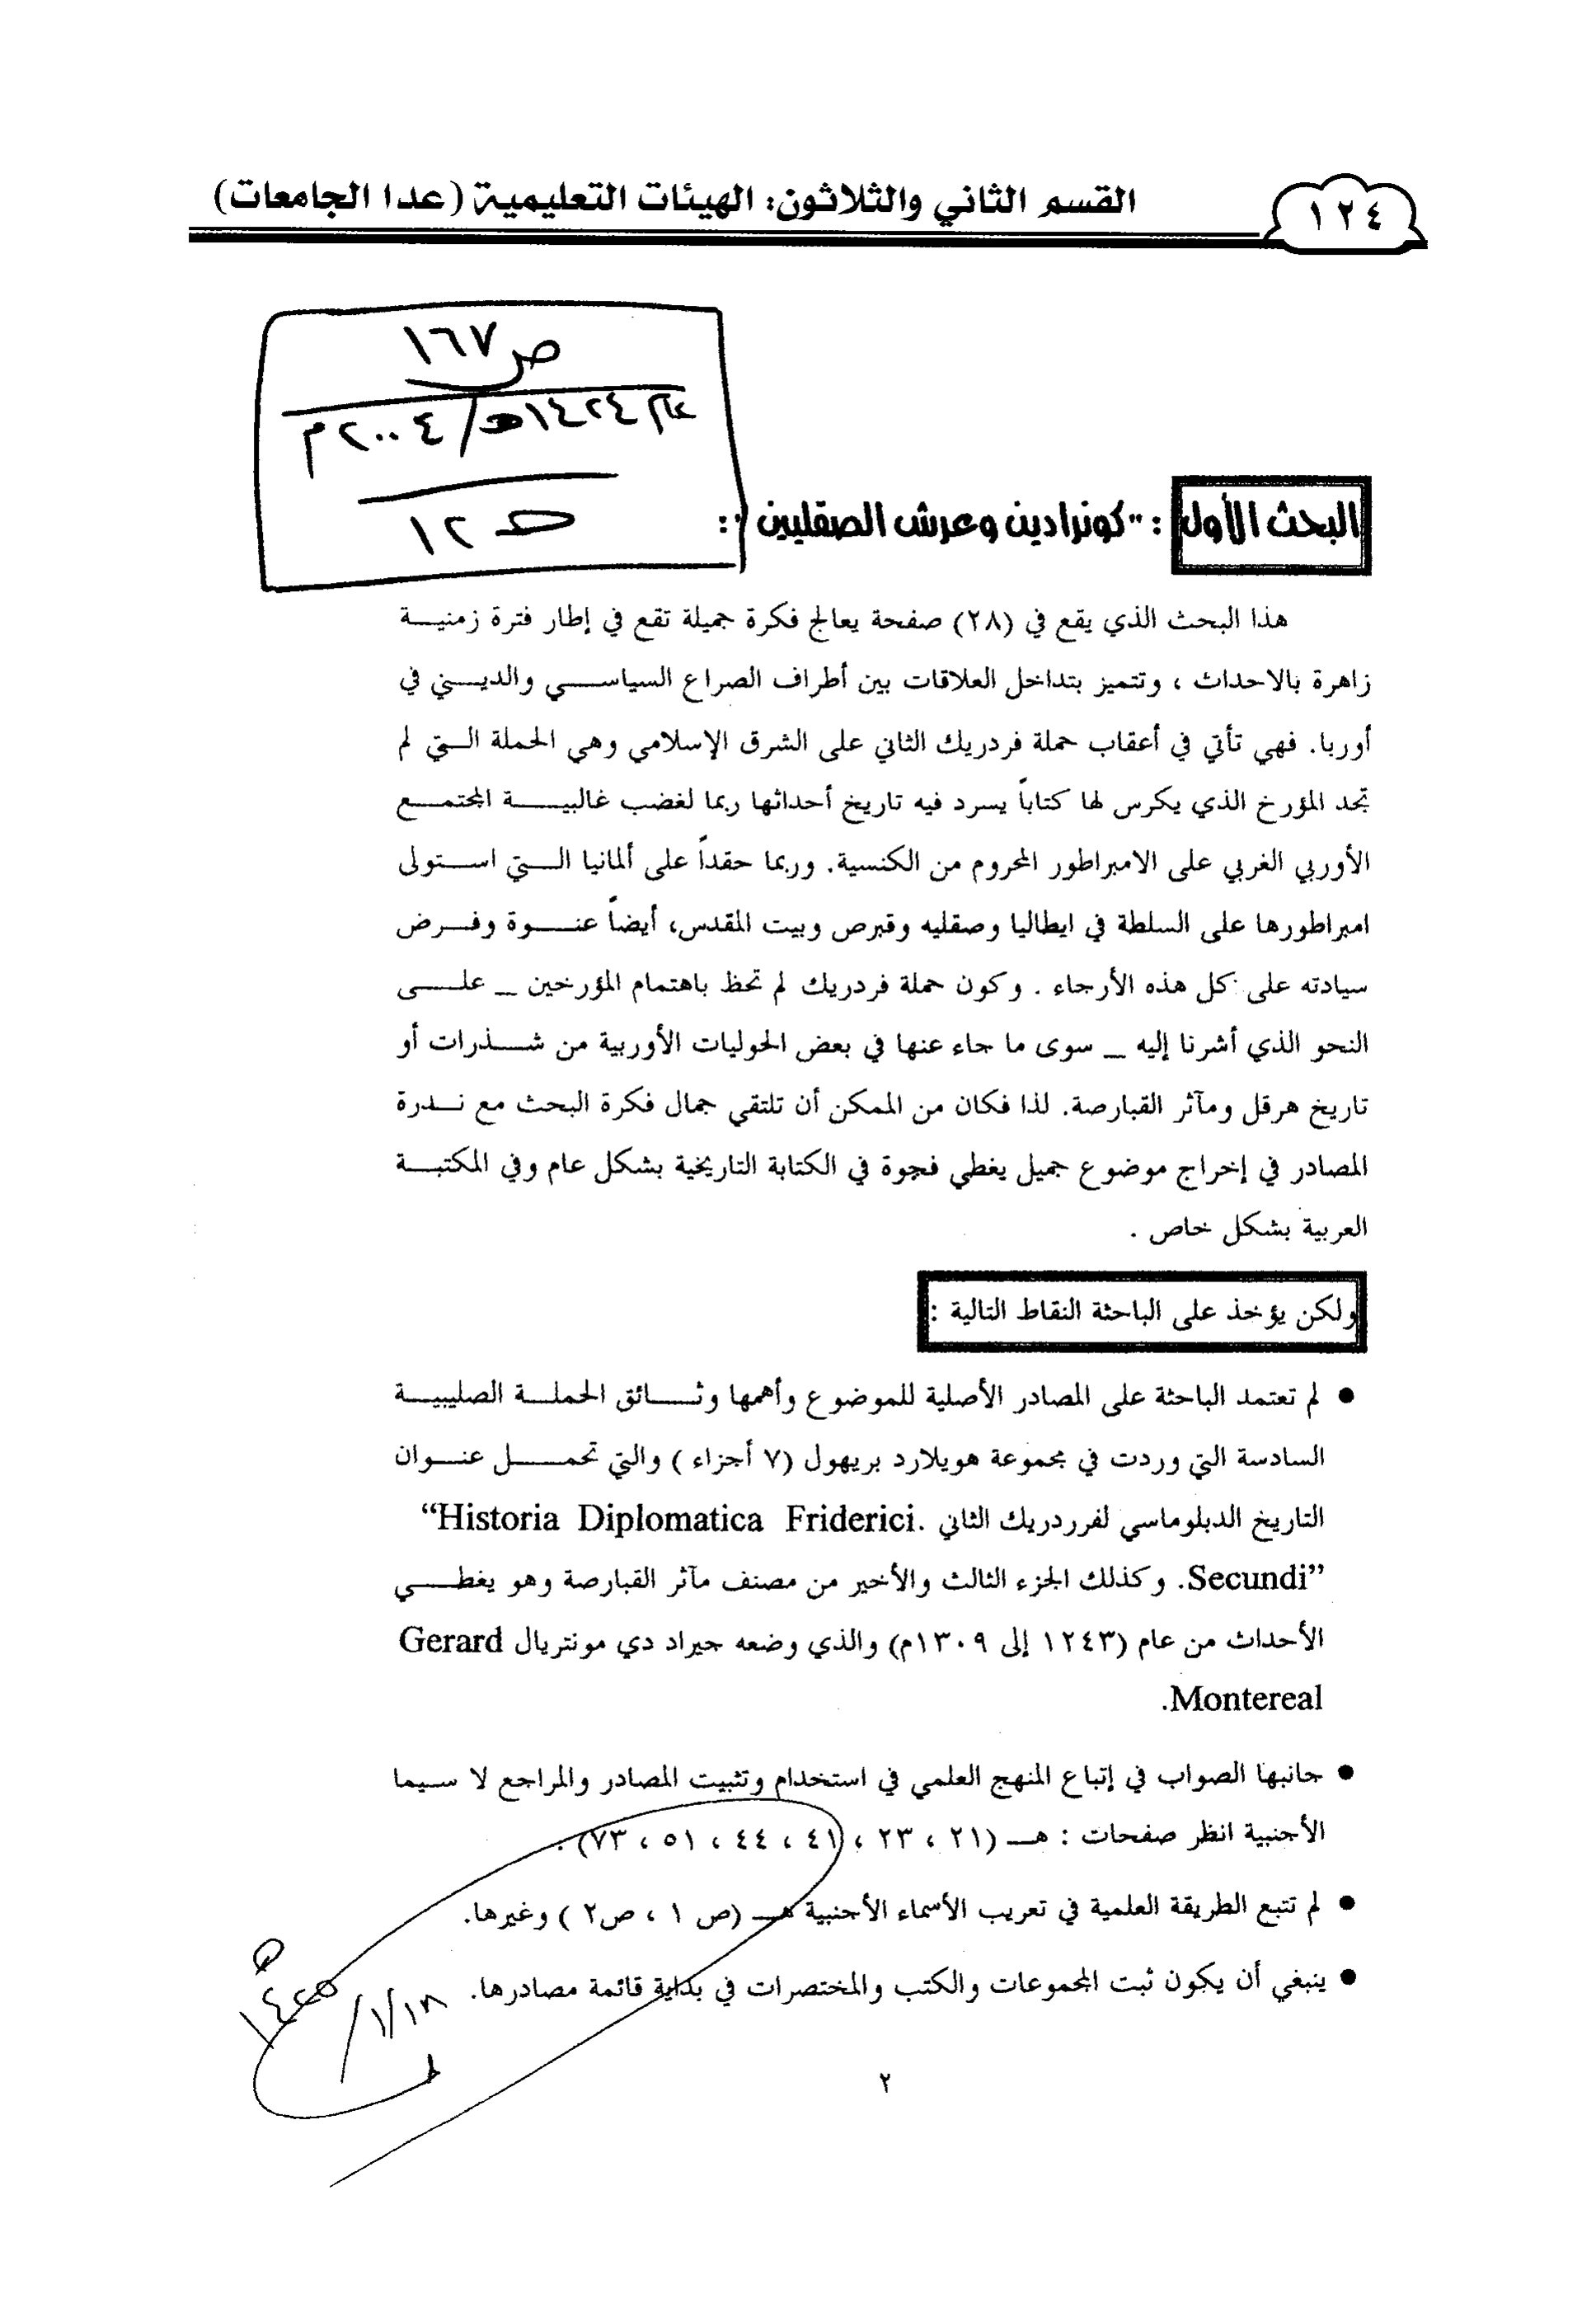 ١٢٤
القسم الثاني والثلاثون: الهيئات التعليمية (عدا الجامعات)
ص ١٦٧
عام ١٤٢٤هـ/٢٠٠٤م
هـ ١٢
البحث الأول : "كونرادين وعرش الصقليين" :
هذا البحث الذي يقع في (٢٨) صفحة يعالج فكرة جميلة تقع في إطار فترة زمنيـة
زاهرة بالاحداث ، وتتميز بتداخل العلاقات بين أطراف الصراع السياسـي والديـني في
أوربا. فهي تأتي في أعقاب حملة فردريك الثاني على الشرق الإسلامي وهي الحملة الـتي لم
تجد المؤرخ الذي يكرس لها كتاباً يسرد فيه تاريخ أحداثها ربما لغضب غالبيـة المجتمـع
الأوربي الغربي على الامبراطور المحروم من الكنسية. وربما حقداً على ألمانيا الـتي اسـتولى
امبراطورها على السلطة في ايطاليا وصقليه وقبرص وبيت المقدس، أيضاً عنـوة وفـرض
سيادته على كل هذه الأرجاء . وكون حملة فردريك لم تحظ باهتمام المؤرخين _ علـى
النحو الذي أشرنا إليه _ سوى ما جاء عنها في بعض الحوليات الأوربية من شـذرات أو
تاريخ هرقل ومآثر القبارصة. لذا فكان من الممكن أن تلتقي جمال فكرة البحث مع نـدرة
المصادر في إخراج موضوع جميل يغطي فجوة في الكتابة التاريخية بشكل عام وفي المكتبـة
العربية بشكل خاص .
ولكن يؤخذ على الباحثة النقاط التالية :
• لم تعتمد الباحثة على المصادر الأصلية للموضوع وأهمها وثـائق الحملـة الصليبيـة
السادسة التي وردت في مجموعة هويلارد بريهول (٧ أجزاء ) والتي تحمـل عنـوان
التاريخ الدبلوماسي لفرردريك الثاني .Historia Diplomatica Friderici“
Secundi”. وكذلك الجزء الثالث والأخير من مصنف مآثر القبارصة وهو يغطـي
الأحداث من عام (١٢٤٣ إلى ١٣٠٩م) والذي وضعه جيراد دي مونتريال Gerard
Montereal.
• جانبها الصواب في إتباع المنهج العلمي في استخدام وتثبيت المصادر والمراجع لا سـيما
الأجنبية انظر صفحات : هـ (٢١ ، ٢٣ ، ٤١ ، ٤٤ ، ٥١ ، ٧٣) .
• لم تتبع الطريقة العلمية في تعريب الأسماء الأجنبية هـ (ص ١ ، ص٢ ) وغيرها.
• ينبغي أن يكون ثبت المجموعات والكتب والمختصرات في بداية قائمة مصادرها.
٢